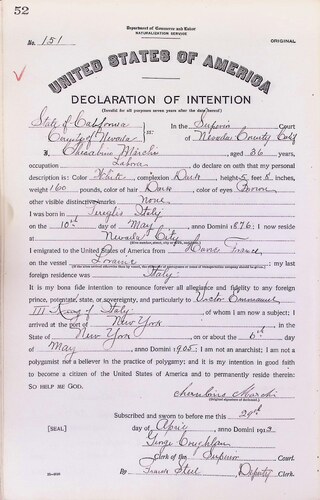 52
Department of Commerce and Labor
NATURALIZATION SERVICE
No. 151 ORIGINAL
UNITED STATES OF AMERICA
DECLARATION OF INTENTION
(Invalid for all purposes seven years after the date hereof)
State of California
County of Nevada ss: In the Superior Court of Nevada County Calif
I, Cherubino Marchi aged 36 years,
occupation Laborer, do declare on oath that my personal
description is: Color White, complexion Dark, height 5 feet 8 inches,
weight 160 pounds, color of hair Dark, color of eyes Brown
other visible distinctive marks None
I was born in Italy
on the 10th day of May, anno Domini 1876; I now reside
at Nevada City
I emigrated to the United States of America from Havre France
on the vessel Loraine; my last
foreign residence was Italy
It is my bona fide intention to renounce forever all allegiance and fidelity to any foreign
prince, potentate, state, or sovereignty, and particularly to Victor Emmanuel
III King of Italy, of whom I am now a subject; I
arrived at the port of New York, in the
State of New York on or about the 6th day
of May, anno Domini 1905; I am not an anarchist; I am not a
polygamist nor a believer in the practice of polygamy; and it is my intention in good faith
to become a citizen of the United States of America and to permanently reside therein:
SO HELP ME GOD.
Marchi
Subscribed and sworn to before me this 29th
[SEAL] day of April, anno Domini 1912
George Coughlan
Clerk of the Superior Court.
By Steel, Deputy Clerk.